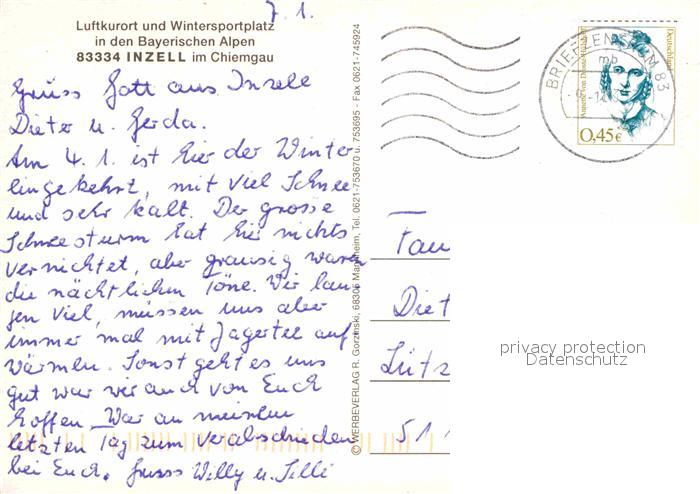 7. 1.
Luftkurort und Wintersportplatz
in den Bayerischen Alpen
83334 INZELL im Chiemgau
Grüss Gott aus Inzell
Dieter u. Gerda.
Am 4. 1. ist hier der Winter
eingekehrt, mit viel Schnee
und sehr kalt. Der grosse
Schneesturm hat hier nichts
vernichtet, aber grausig waren
die nächtlichen Töne. Wir lau-
fen viel, müssen uns aber
immer mal mit Jagertee auf
wärmen. Sonst geht es uns
gut was wir auch von Euch
hoffen. War an meinem
letzten Tag zum verabschieden
bei Euch. Gruss Willy u. Silli
© WERBEVERLAG R. Gorzinski, 68305 Mannheim, Tel. 0621-753670 u. 753695 - Fax 0621-745924
BRIEFZENTRUM 83
mb
Annette von Droste-Hülshoff
Deutschland
0,45€
Fau
Diet
Lütz
51
privacy protection
Datenschutz